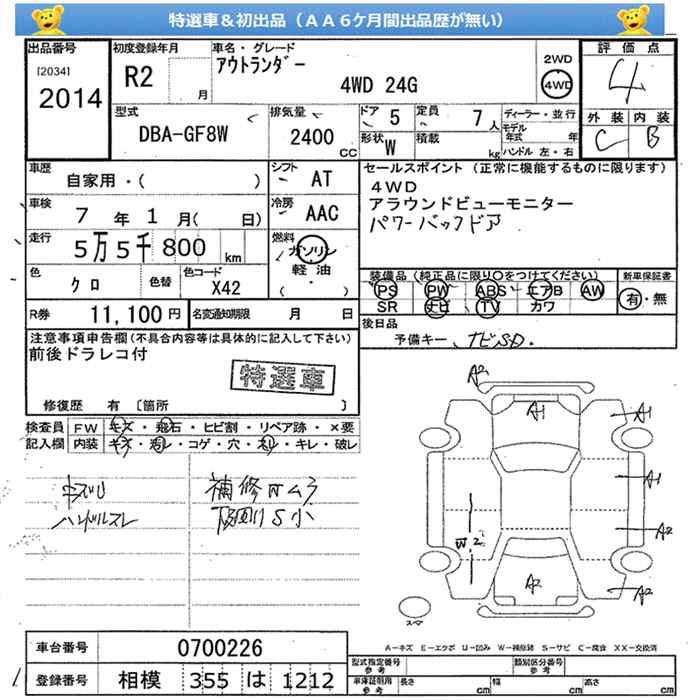 特選車&初出品(AA6ケ月間出品歴が無い)
出品番号 初度登録年月 車名・グレード 評価点
[2034] 2014 R2 月 アウトランダー 4WD 24G 2WD 4WD 4
型式 DBA-GF8W 排気量 2400 CC ドア 5 定員 7 人 ディーラー・並行 外装 内装
形状 W 積載 kg モデル年式 年 ハンドル 左・右 C B
車歴 自家用・( ) シフト AT セールスポイント(正常に機能するものに限ります)
車検 7 年 1 月( 日) 冷房 AAC 4WD
アラウンドビューモニター
パワーバックドア
走行 5万5千800 km 燃料 ガソリン 軽油 ( ・ )
色 クロ 色替 色コード X42 装備品(純正品に限り○をつけてください) 新車保証書
PS PW ABS エアB AW 有・無
SR ナビ TV カワ
R券 11,100 円 名変通知期限 月 日 後日品
予備キー、ナビSD.
注意事項申告欄(不具合内容等は具体的に記入して下さい)
前後ドラレコ付
特選車
修復歴 有 〔箇所 〕
検査員記入欄 FW キズ・飛石・ヒビ割・リペア跡・×要
内装 キズ・汚レ・コゲ・穴・スレ・キレ・破レ
キズU 補修Wムラ
ハンドルスレ 下回りS小
A2
A1 A1
A1
W2 A2
A2 A2
スマ
A-キズ E-エクボ U-凹み W-補修跡 S-サビ C-腐食 XX-交換済
車台番号 0700226 型式指定番号 参考 類別区分番号 参考
登録番号 相模 355 は 1212 車庫証明用 参考 長さ cm 幅 cm 高さ cm